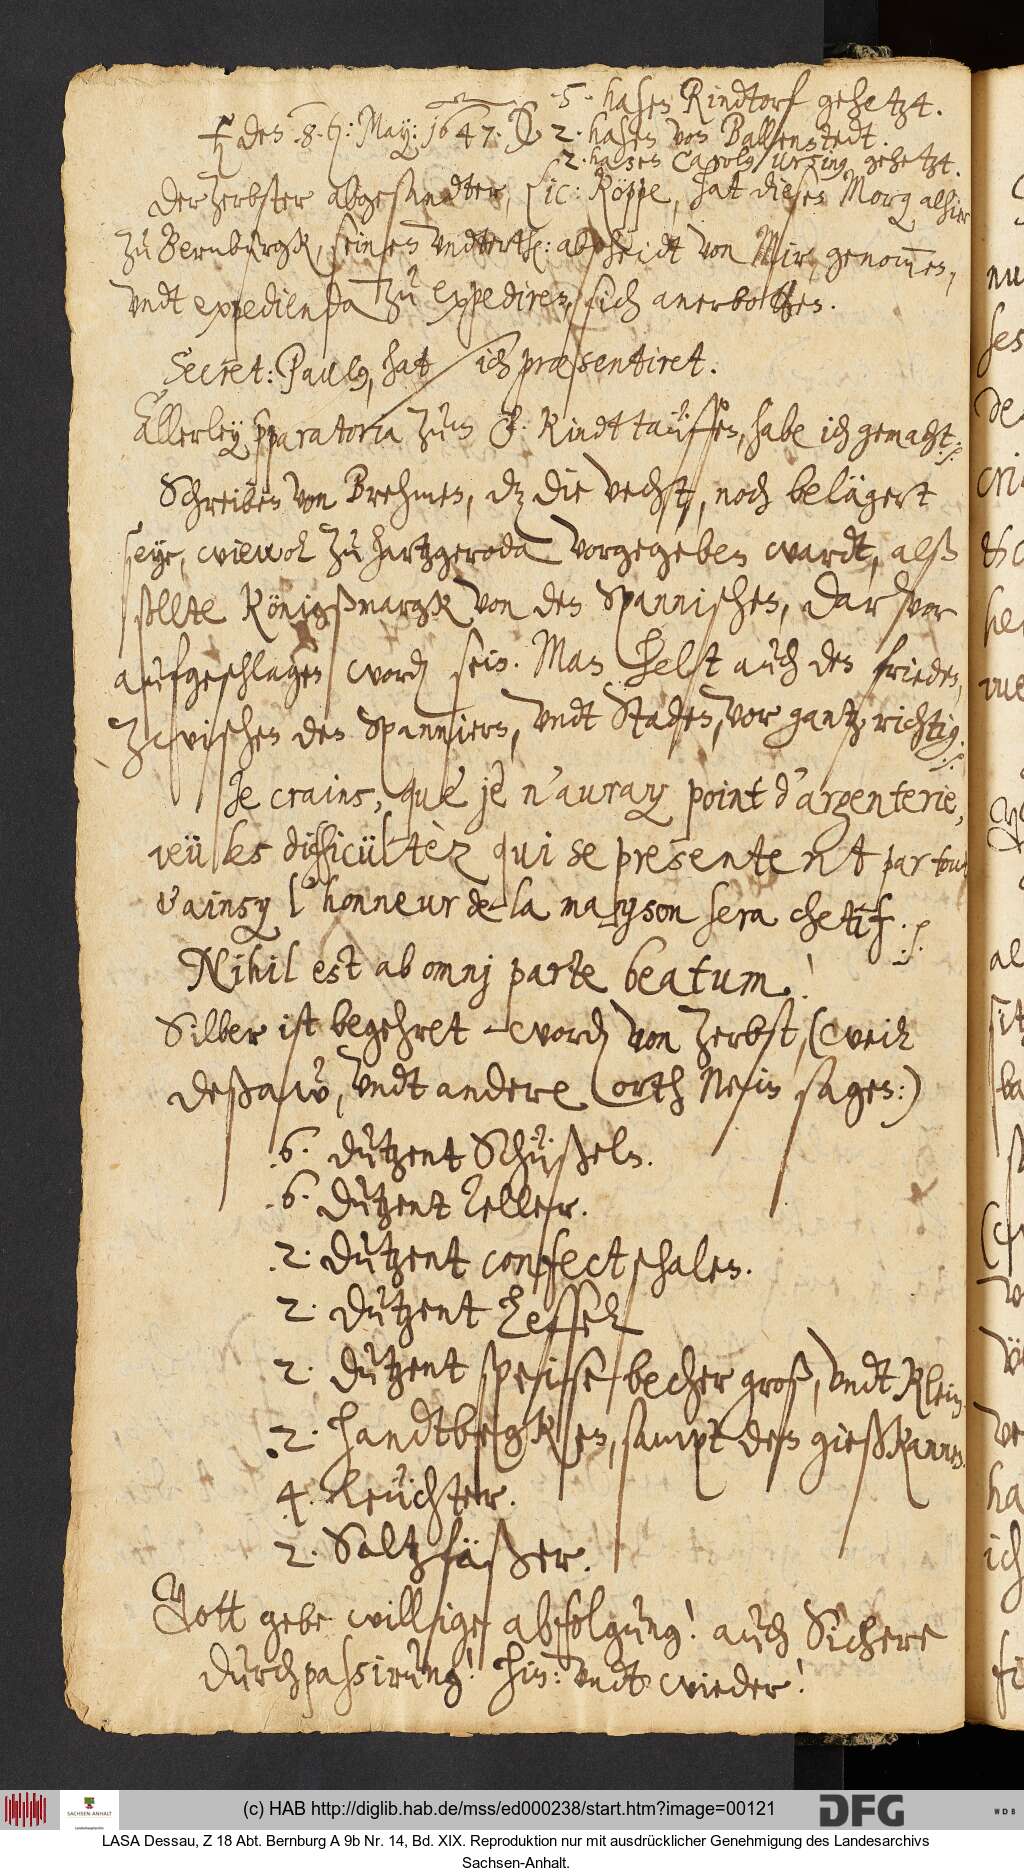 5. hasen Rindtorf gehetzt.
den .8. May: 1647. 2. hasen von Ballenstedt.
2. hasen Carolus Ursinus gehetzt.
Der Zerbster abgesandter, Lic: Röppe, hat diesen Morg alhier
zu Bernburgk, seinen Vndterth: abscheidt von Mir, genommen,
vndt expedienda zu expediren, sich anerbotten.
Secret: Paulus, hat sich præsentiret.
Allerley pparatoria zum Kindttauffen, habe ich gemacht
Schreiben von Brehmen, dz die Vecht, noch belägert
seye, wiewol zu Hartzgeroda vorgegeben wardt, alß
sollte Königßmargk von den Spannischen, darvor
aufgeschlagen word sein. Man helt auch den frieden,
zwischen den Spanniern, vndt Staden, vor gantz richtig
Je crains, que je n'auray point d'argenterie,
veü les difficültèz qui se presentent par tout
& ainsy l'honneur de la mayson sera chetif
Nihil est ab omnj parte beatum!
Silber ist begehret word von Zerbst, (weil
Deßaw, vndt andere orth Nein sagen:)
.6. Dutzent Schüßeln.
.6. Dutzent Teller.
.2. Dutzent confectschalen.
2. Dutzent Leffel
2. Dutzent speisse becher groß, vndt klein
.2. Handtbecken, sampt den gießkannen.
4. Leuchter.
2. Saltzfäßer.
Gott gebe willige abfolgung! auch Sichere
durchpassirung! hin: vndt wieder!
(c) HAB http://diglib.hab.de/mss/ed000238/start.htm?image=00121
DFG
WDB
SACHSEN-ANHALT
LASA Dessau, Z 18 Abt. Bernburg A 9b Nr. 14, Bd. XIX. Reproduktion nur mit ausdrücklicher Genehmigung des Landesarchivs
Sachsen-Anhalt.